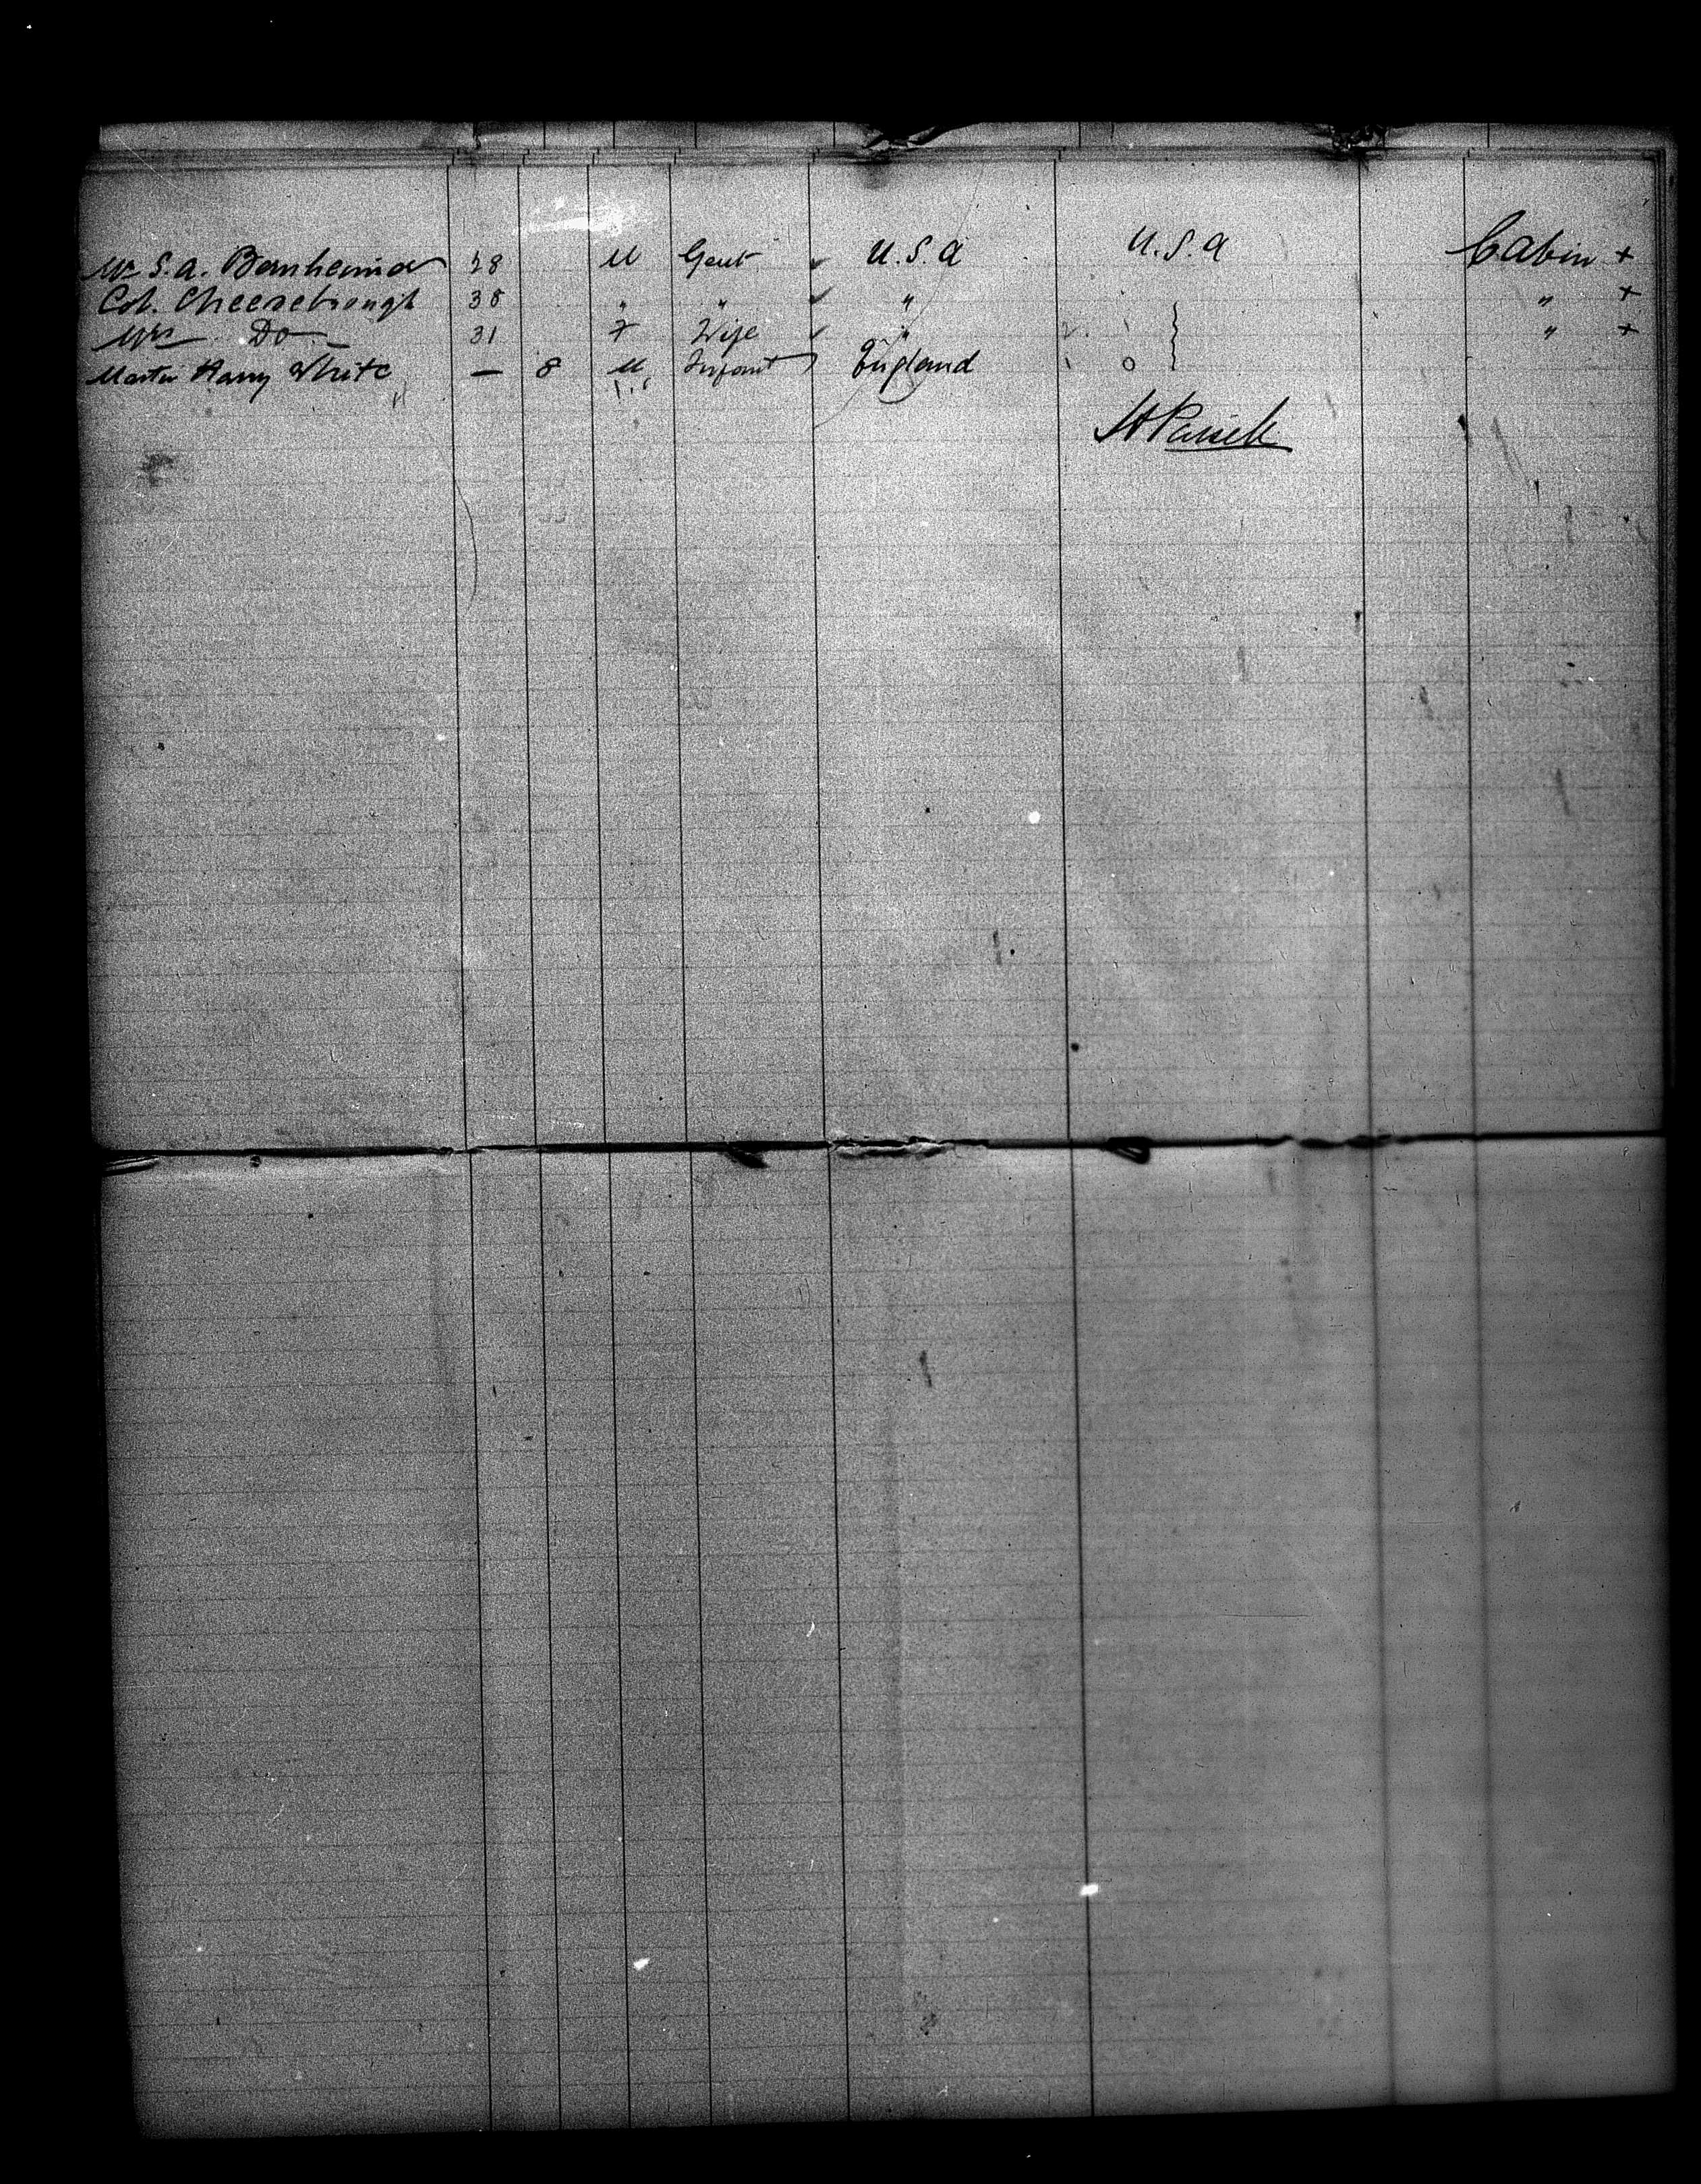 Mr S. A. Bernheimer 28 M Gent U.S.A U.S.A Cabin +
Col. Cheesebrough 38 " " " " +
Mrs Do 31 F Wife " " +
Master Harry White — 8 M Infant England